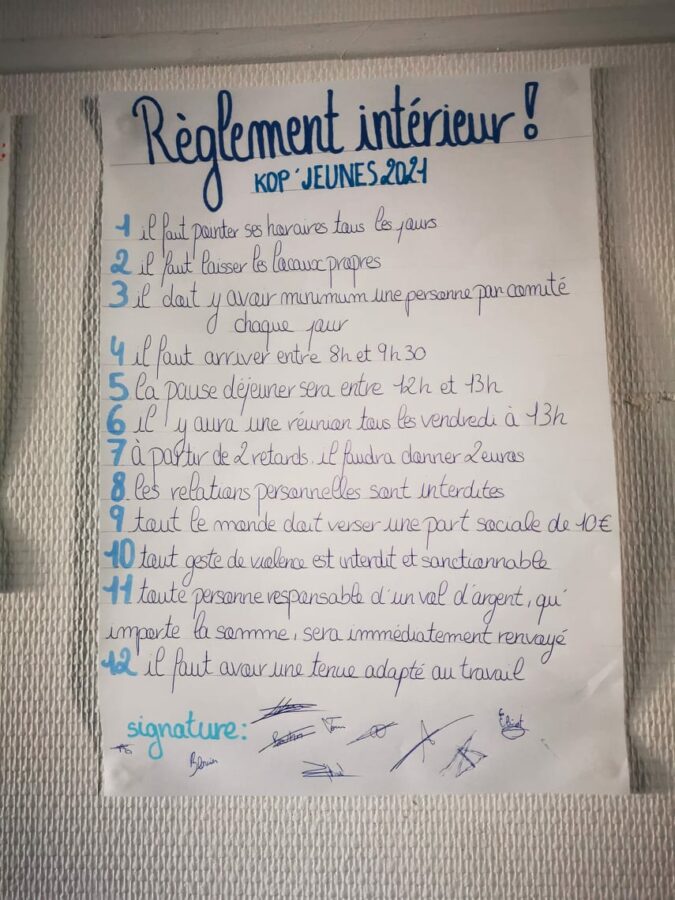 Règlement intérieur !
KOP'JEUNES 2021
1 il faut pointer ses horaires tous les jours
2 il faut laisser les locaux propres
3 il doit y avoir minimum une personne par comité
chaque jour
4 il faut arriver entre 8h et 9h30
5 la pause déjeuner sera entre 12h et 13h
6 il y aura une réunion tous les vendredi à 13h
7 à partir de 2 retards il faudra donner 2 euros
8 les relations personnelles sont interdites
9 tout le monde doit verser une part sociale de 10€
10 tout geste de violence est interdit et sanctionnable
11 toute personne responsable d'un vol d'argent, qu'
importe la somme, sera immédiatement renvoyé
12 il faut avoir une tenue adapté au travail
signature: